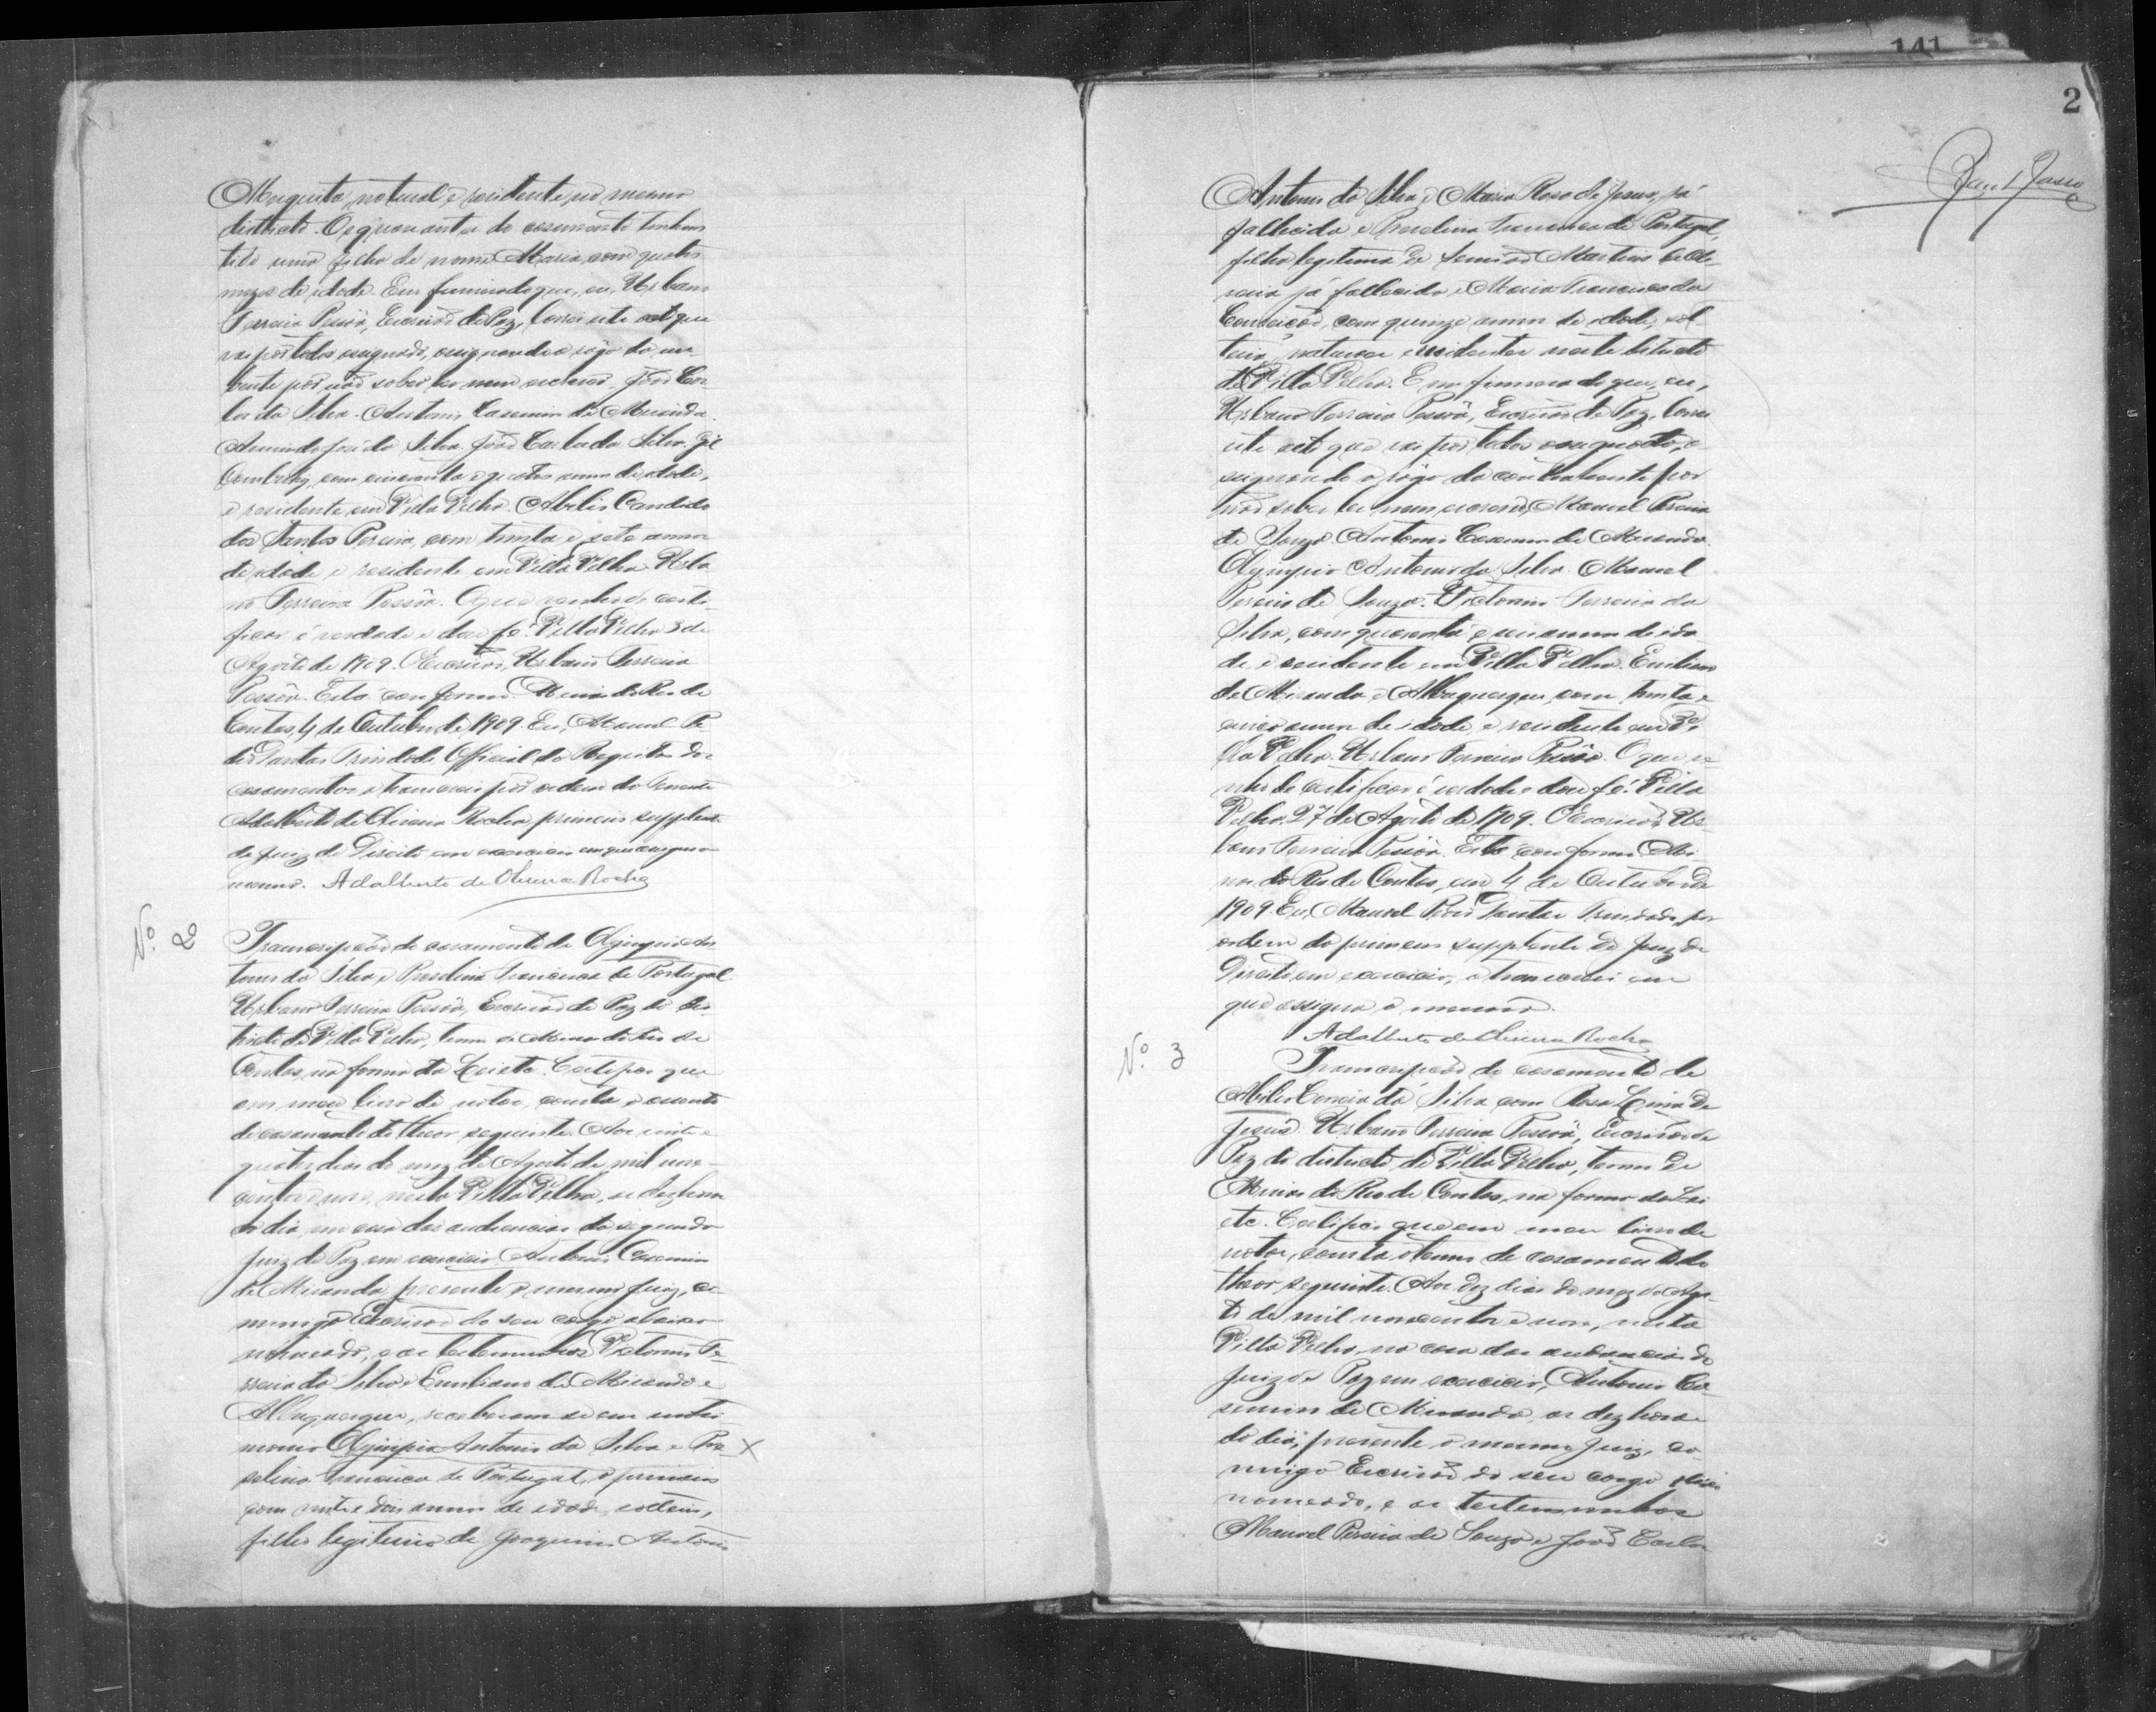 Mesquita, natural e residente no mesmo
districto. Os quaes antes do casamento tenham
tido uma filha de nome Maria com quatro
mezes de idade. Em firmeza do que, eu, Urbano
Ferreira Pessôa, Escrivão de Paz, lavrei este acto que
vai por todos assignado, assignando a rogo da nu-
bente por não saber ler nem escrever João Car-
los da Silva. Antonio Casemiro de Miranda.
José da Silva. João Carlos da Silva,
com cincoenta e quatro annos de idade,
e residente em Villa Velha. Abilio Candido
dos Santos Pereira, com trinta e sete annos
de idade e residente em Villa Velha. Urba
no Ferreira Pessôa. O que venho de certi-
ficar é verdade e dou fé. Villa Velha 3 de
Agosto de 1909. O Escrivão, Urbano Ferreira
Pessôa. Está conforme. Minas do Rio de
Contas, 4 de Outubro de 1909. Eu, Manoel Pe
dro Dantas Trindade Official do Registro dos
casamentos o transcrevi por ordem do Tenente
Adalberto de Oliveira Rocha primeiro supplente
do Juiz de Direito em exercicio em que assigna o
mesmo. Adalberto de Oliveira Rocha
Nº 2
Transcripção do casamento de Olympio An
tonio da Silva e Prezelina Francisca de Portugal.
Urbano Ferreira Pessôa, Escrivão de Paz do dis-
tricto de Villa Velha, termo de Minas do Rio de
Contas, na forma da Lei etc. Certifico que
em meu livro de notas, consta o assento
de casamento do theor seguinte. Aos vinte e
quatro dias do mez de Agosto de mil nove-
centos e nove, nesta Villa Velha, as dez horas
do dia, em casa das audiencias do segundo
Juiz de Paz em exercicio Antonio Casemiro
de Miranda, presente o mesmo Juiz, co-
migo Escrivão do seu cargo abaixo
nomeado, e as testemunhas Victorino Fe-
rreira da Silva e Emiliano de Miranda e
Albuquerque, receberam-se em matri-
monio Olympio Antonio da Silva e Pre X
zelina Francisca de Portugal, o primeiro
com vinte e dois annos de idade, solteiro,
filho legitimo de Joaquim Antonio
2
Antonio da Silva e Maria Rosa de Jesus, já
fallecida e Prezelina Francisca de Portugal,
filha legitima de Martins
já fallecido e Maria Francisca da
Conceição, com quinze annos de idade, sol-
teira, naturaes e residentes neste districto
de Villa Velha. E em firmeza do que, eu,
Urbano Ferreira Pessôa, Escrivão de Paz, lavrei
este acto que vai por todos assignado, a-
ssignando a rogo da contrahente por
não saber ler nem escrever, Manoel Pereira
de Souza. Antonio Casemiro de Miranda.
Olympio Antonio da Silva. Manoel
Pereira de Souza. Victorino Ferreira da
Silva, com quarenta e seis annos de ida
de e residente em Villa Velha. Emiliano
de Miranda e Albuquerque, com trinta e
cinco annos de idade e residente em Vi
lla Velha. Urbano Ferreira Pessôa. O que ve
nho de certificar é verdade e dou fé. Villa
Velha, 27 de Agosto de 1909. O Escrivão, Ur-
bano Ferreira Pessôa. Está conforme. Mi-
nas do Rio de Contas, em 4 de Outubro de
1909. Eu, Manoel Pedro Dantas Trindade, por
ordem do primeiro supplente do Juiz de
Direito em exercicio, o transcrevi em
que assigna o mesmo.
Adalberto de Oliveira Rocha
Nº 3
Transcripção do casamento de
Abilio Correia da Silva com Rosa Lima de
Jesus. Urbano Ferreira Pessôa, Escrivão de
Paz do districto de Villa Velha, termo de
Minas do Rio de Contas, na forma da Lei
etc. Certifico que em meu livro de
notas, consta o termo de casamento do
theor seguinte. Aos dez dias do mez de Agos-
to de mil novecentos e nove, nesta
Villa Velha, na casa das audiencias do
Juiz de Paz em exercicio, Antonio Ca-
semiro de Miranda, as dez horas
do dia, presente o mesmo Juiz, co-
migo Escrivão do seu cargo abaixo
nomeado, e as testemunhas
Manoel Pereira de Souza e João Carlos